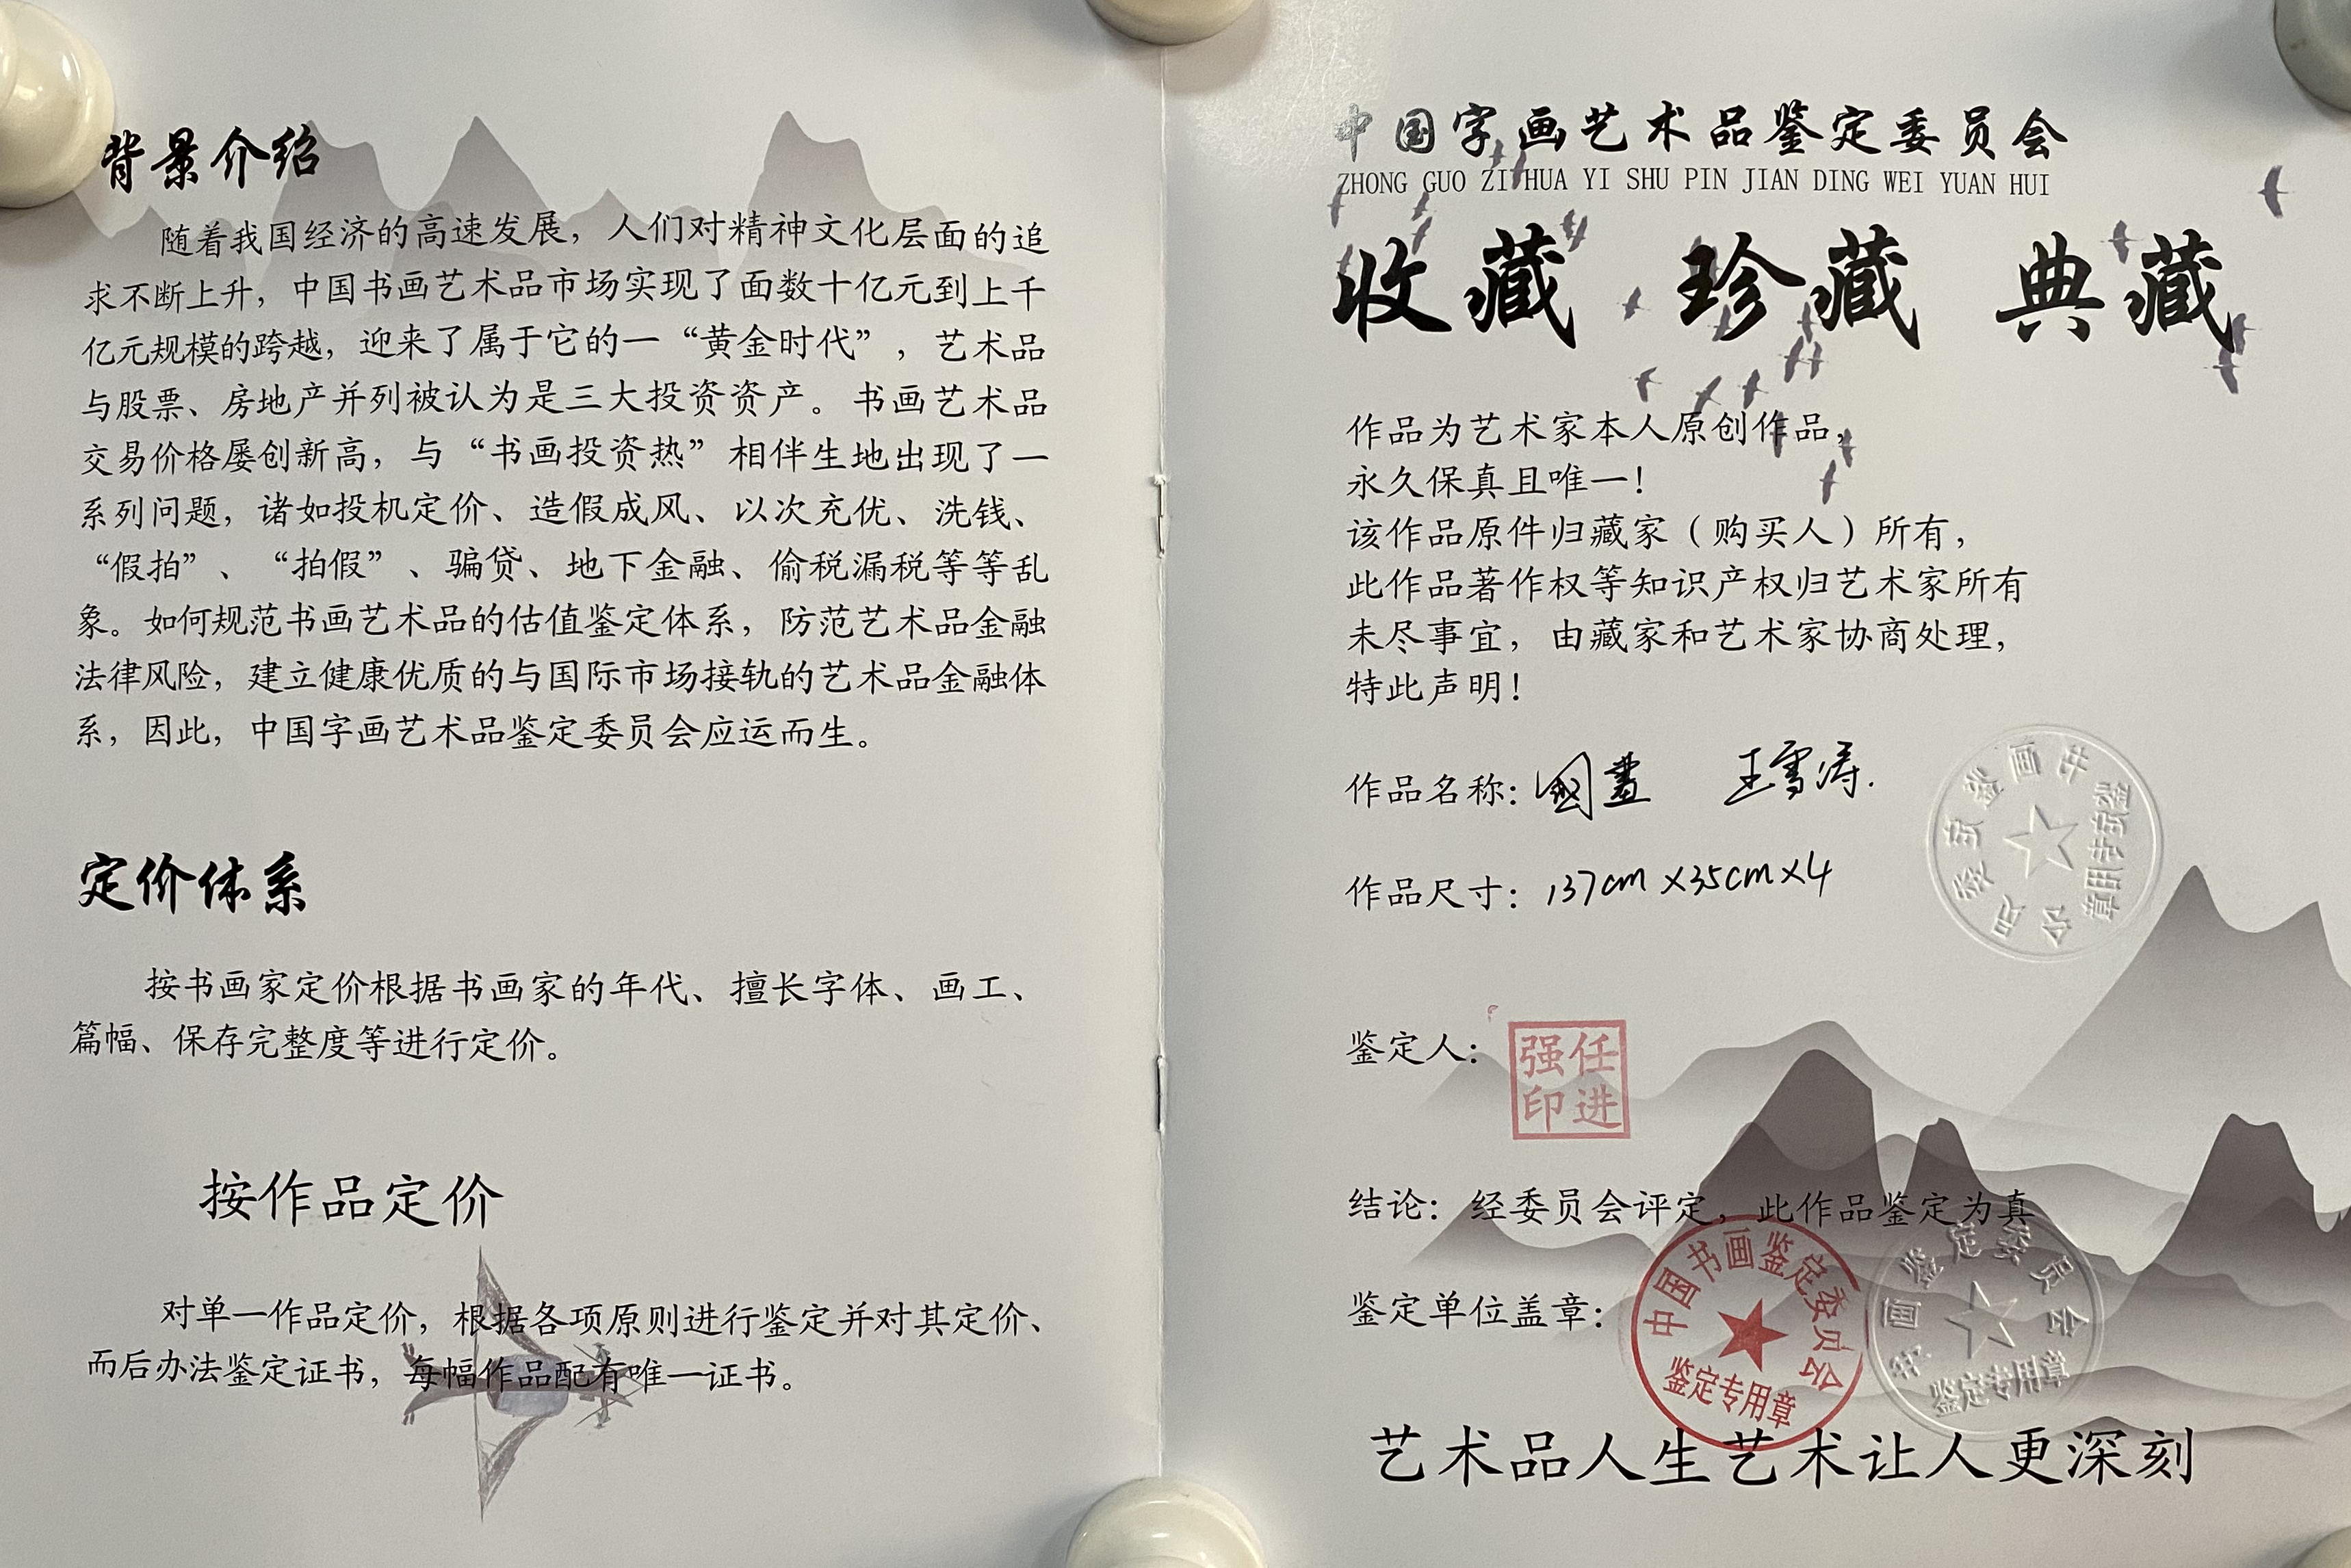 背景介绍
随着我国经济的高速发展，人们对精神文化层面的追
求不断上升，中国书画艺术品市场实现了面数十亿元到上千
亿元规模的跨越，迎来了属于它的一“黄金时代”，艺术品
与股票、房地产并列被认为是三大投资资产。书画艺术品
交易价格屡创新高，与“书画投资热”相伴生地出现了一
系列问题，诸如投机定价、造假成风、以次充优、洗钱、
“假拍”、“拍假”、骗贷、地下金融、偷税漏税等等乱
象。如何规范书画艺术品的估值鉴定体系，防范艺术品金融
法律风险，建立健康优质的与国际市场接轨的艺术品金融体
系，因此，中国字画艺术品鉴定委员会应运而生。
定价体系
按书画家定价根据书画家的年代、擅长字体、画工、
篇幅、保存完整度等进行定价。
按作品定价
对单一作品定价，根据各项原则进行鉴定并对其定价、
而后办法鉴定证书，每幅作品配有唯一证书。
中国字画艺术品鉴定委员会
ZHONG GUO ZI HUA YI SHU PIN JIAN DING WEI YUAN HUI
收藏 珍藏 典藏
作品为艺术家本人原创作品，
永久保真且唯一！
该作品原件归藏家（购买人）所有，
此作品著作权等知识产权归艺术家所有
未尽事宜，由藏家和艺术家协商处理，
特此声明！
作品名称：國畫 王雪涛.
作品尺寸：137cm×35cm×4
书画鉴定委员会
鉴定专用章
鉴定人：
任进
强印
结论：经委员会评定，此作品鉴定为真
鉴定单位盖章：
中国书画鉴定委员会
鉴定专用章
书画鉴定委员会
鉴定专用章
艺术品人生艺术让人更深刻